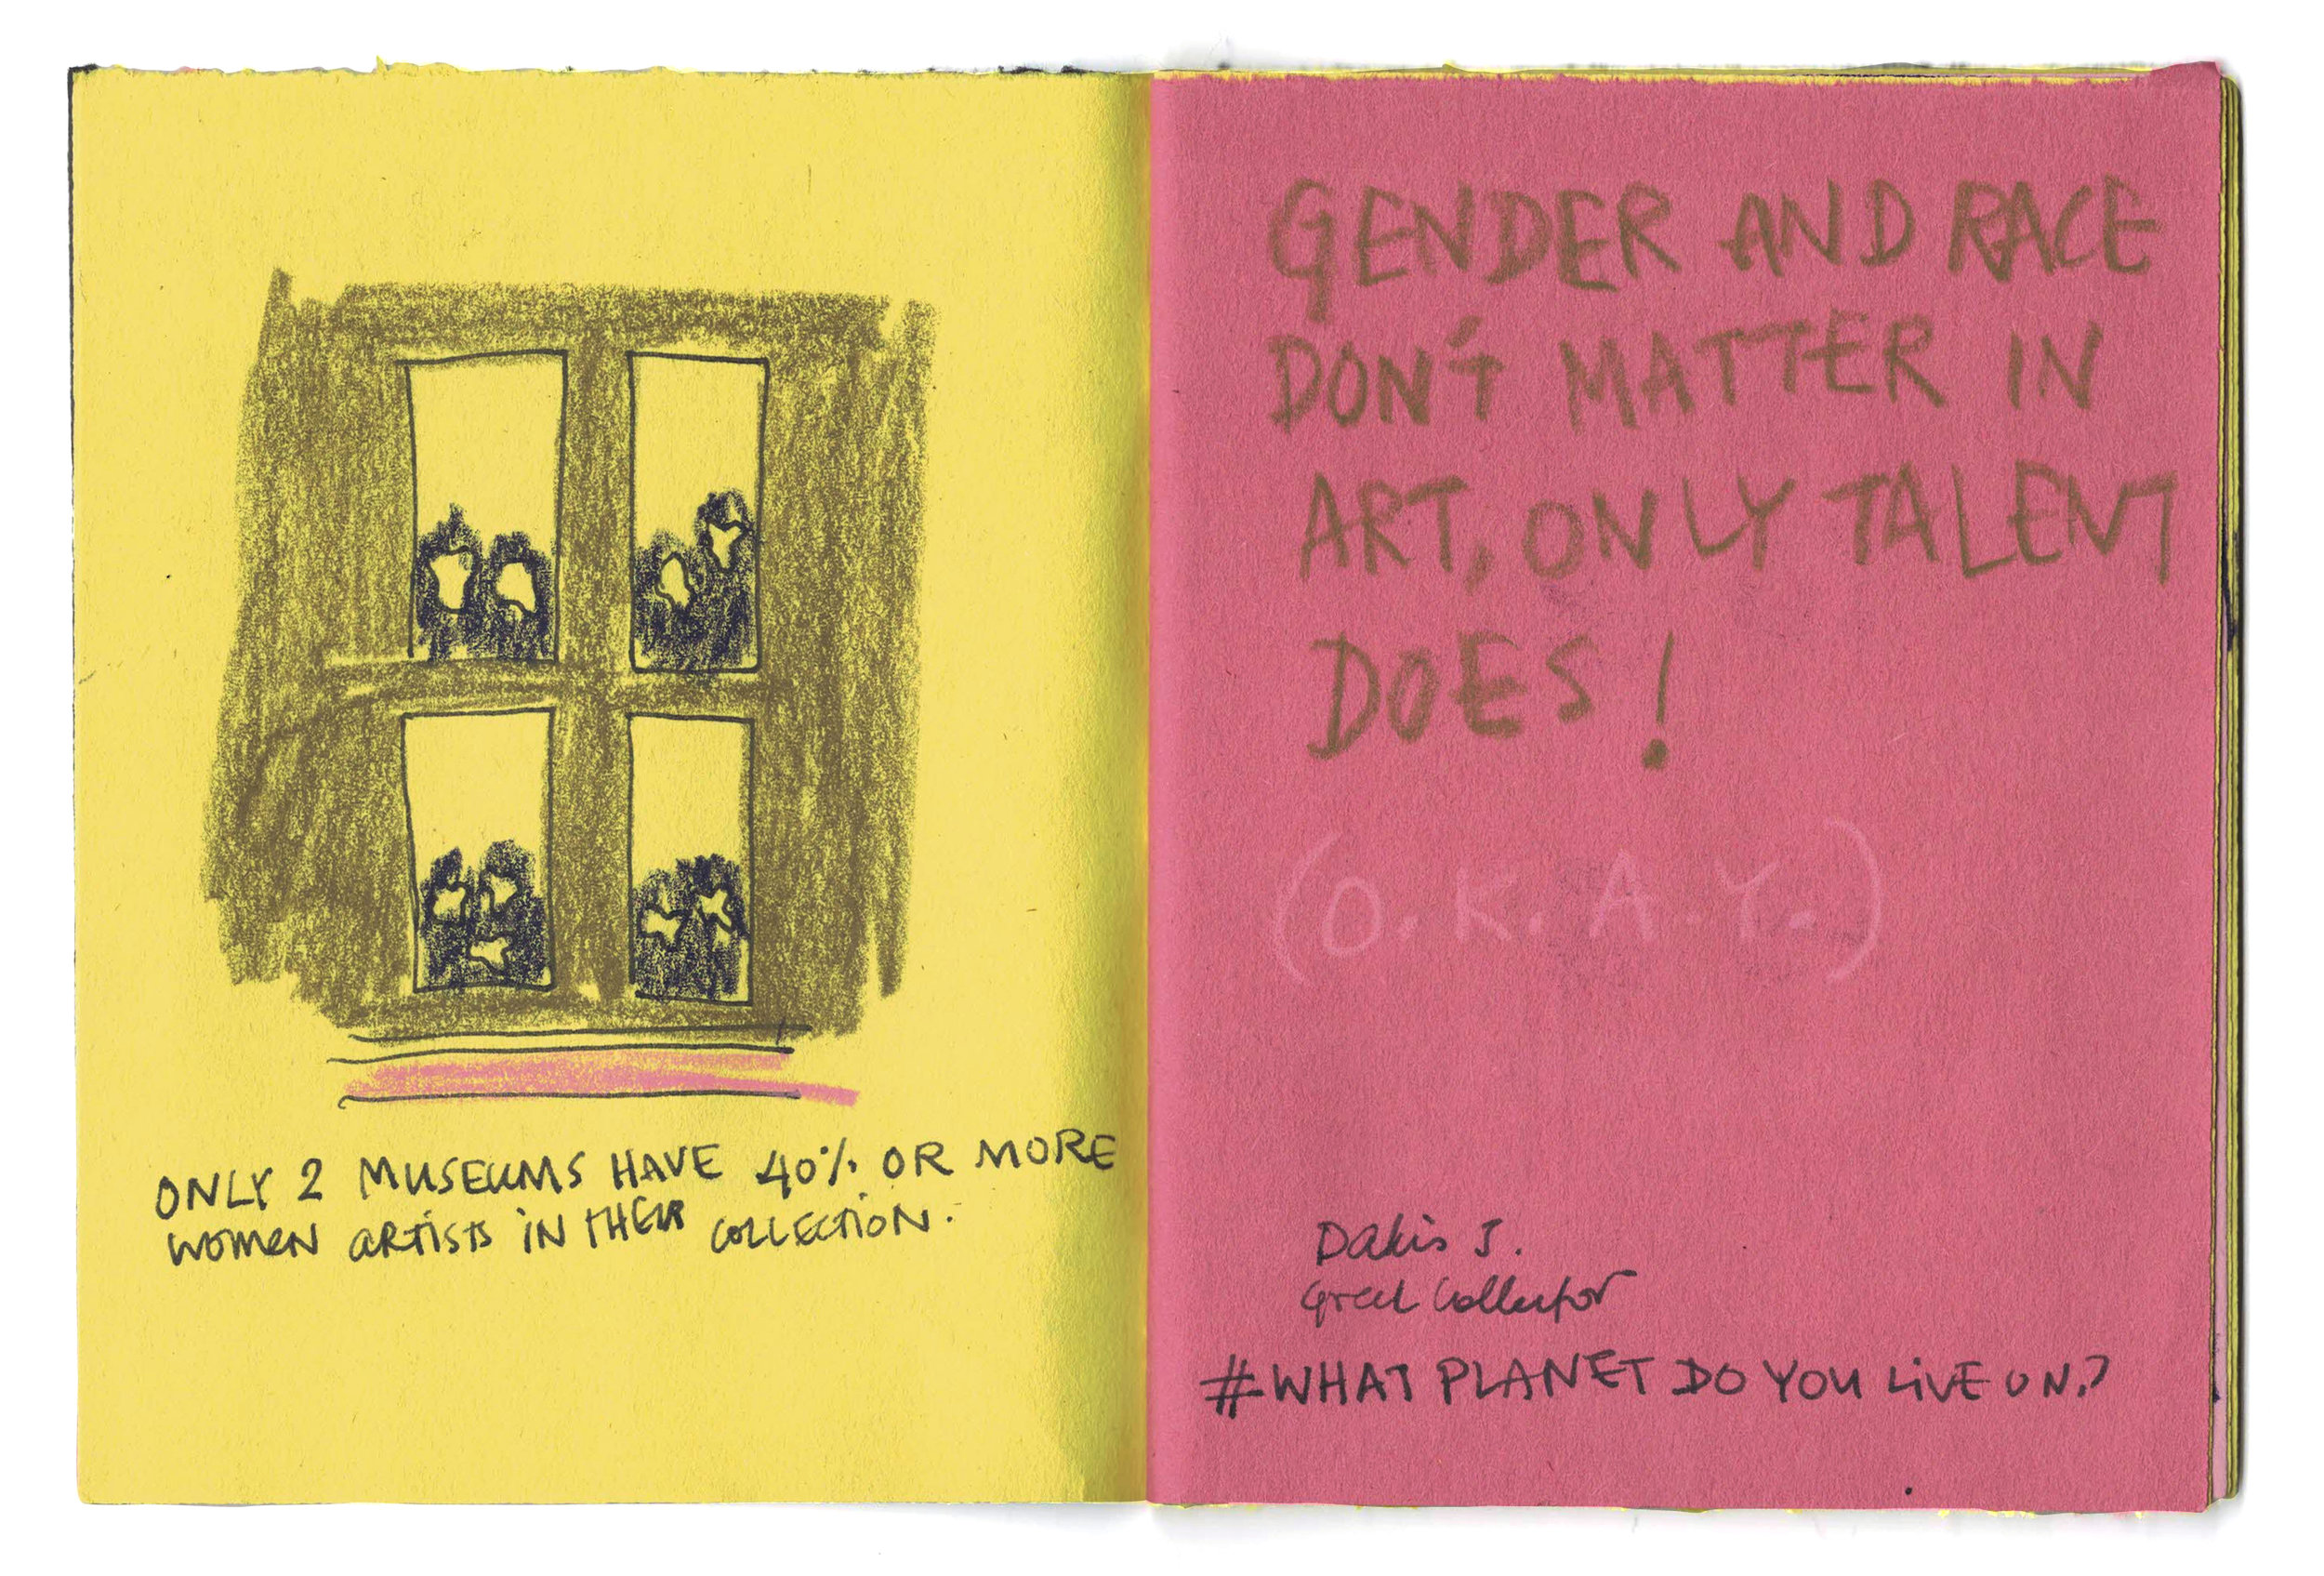 ONLY 2 MUSEUMS HAVE 40% OR MORE
WOMEN ARTISTS IN THEIR COLLECTION.
GENDER AND RACE
DON'T MATTER IN
ART, ONLY TALENT
DOES!
(O.K.A.Y.)
Dakis J.
Greek Collector
#WHAT PLANET DO YOU LIVE ON?